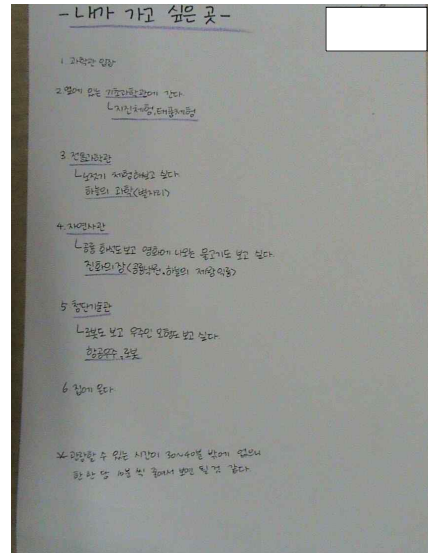 - 내가 가고 싶은 곳 -
1. 과학관 입장
2. 옆에 있는 기초과학관에 간다.
└지진체험, 태풍체험
3 전통과학관
└보고 싶다
하늘의 과학(별자리)
4. 자연사관
└공룡 화석도 보고 영화에 나오는 물고기도 보고 싶다.
진화의 장(공룡, 하늘의 제왕 익룡)
5 첨단기술관
└로봇도 보고 우주인 모형도 보고 싶다
항공우주, 로봇
6 집에 온다
※ 관람할 수 있는 시간이 30~40분 밖에 없으니
한 관 당 10분 씩 줄여서 보면 될 것 같다.